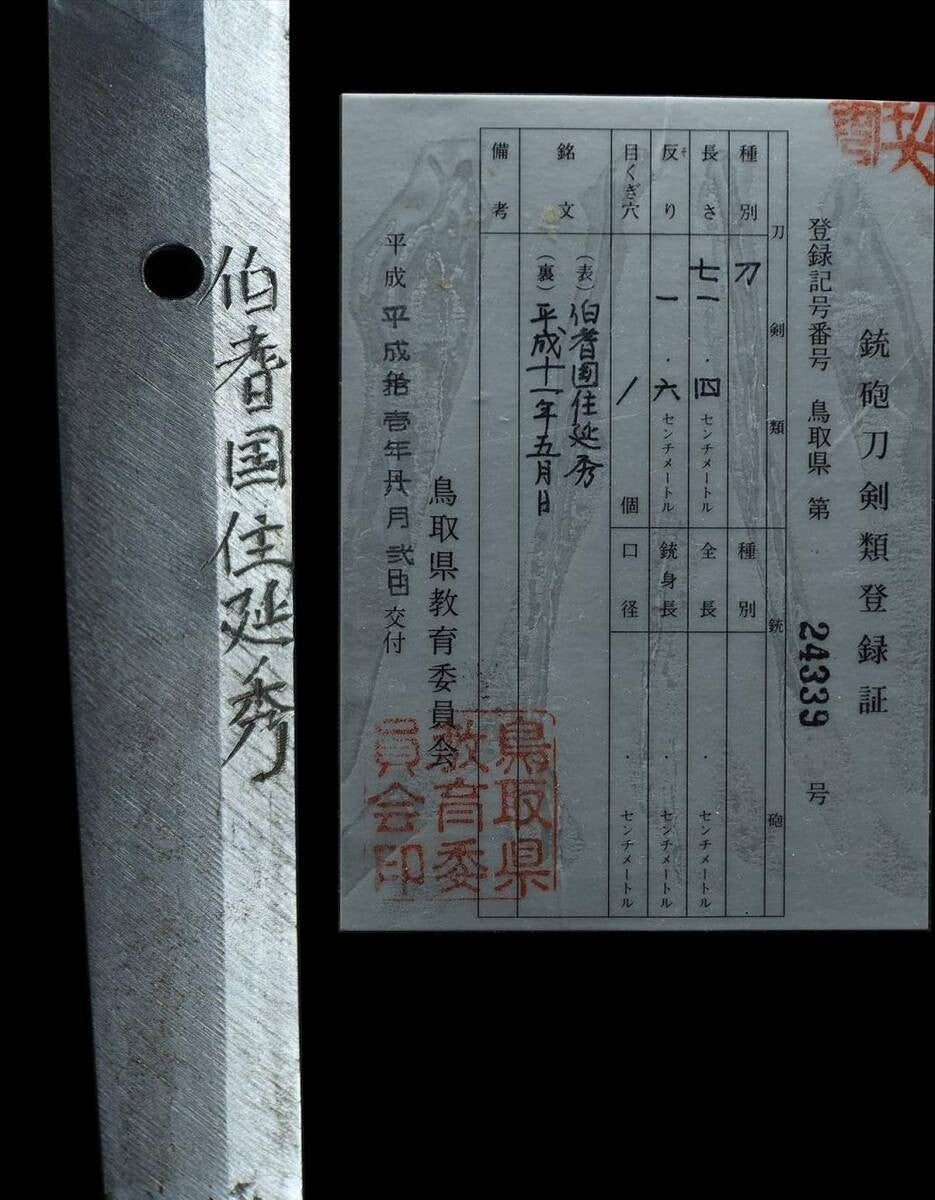 銃砲刀剣類登録証
登録記号番号 鳥取県 第 24339 号
刀剣類
銃砲
種別 刀
長さ 七一・四センチメートル
反り そ 一・六センチメートル
目くぎ穴 1個
種別
全長 ・ センチメートル
銃身長 ・ センチメートル
口径 ・ センチメートル
銘文 (表) 伯耆國住延秀
(裏) 平成十一年五月日
備考
鳥取県教育委員会
平成 平成拾壱年 月 交付
鳥取県
教育委
員会印
伯耆国住延秀